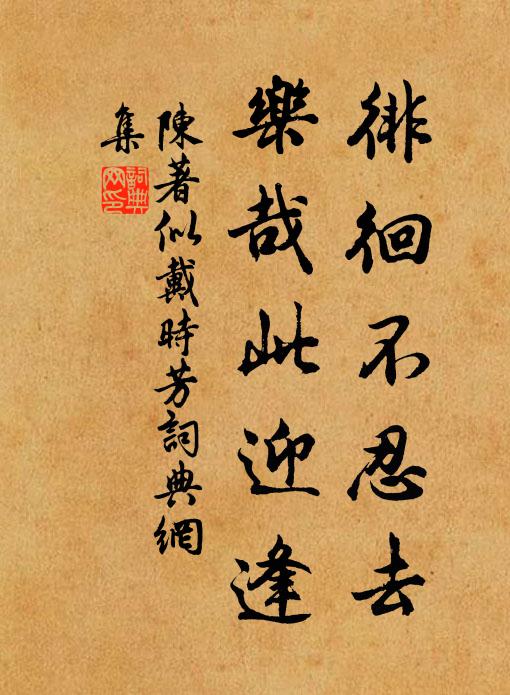 徘徊不忍去
樂哉此迎逢
陳著似戴時芳詞典網
集
詞典網印